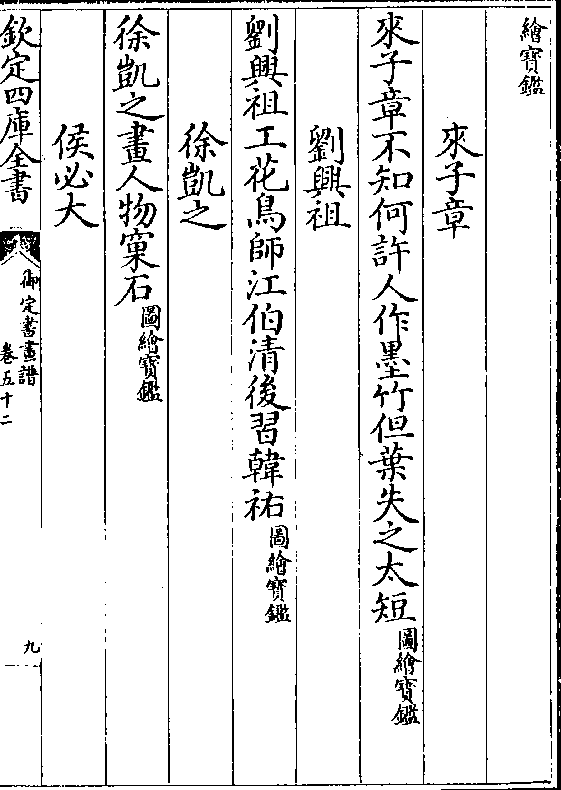 繪寶鑑
來子章
來子章不知何許人作墨竹但葉失之太短圖繪寶鑑
劉興祖
劉興祖工花鳥師江伯清後習韓祐圖繪寶鑑
徐凱之
徐凱之畫人物窠石圖繪寶鑑
侯必大
欽定四庫全書
御定書畫譜
卷五十二
九